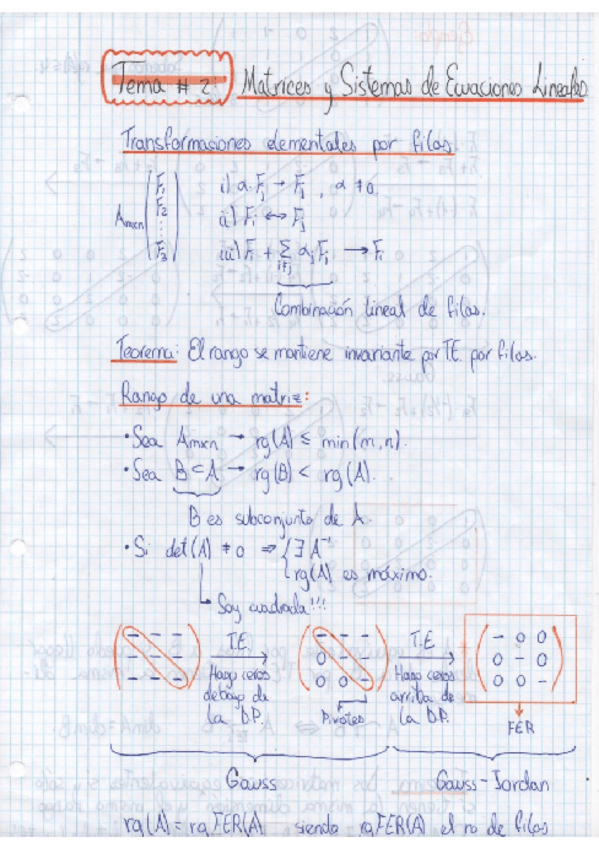 Tema # 2 Matrices y Sistemas de Ecuaciones Lineales
Transformasiones elementales por filas
Amxn (F₁ F₂ ⋮ F₃) i) α·Fj → Fj , α ≠ 0
ii) Fi ↔ Fj
iii) Fi + Σ i≠j αj Fj → Fi
Combinación lineal de filas.
Teorema: El rango se mantiene invariante por TE. por filas.
Rango de una matriz:
• Sea Amxn → rg(A) ≤ min(m,n).
• Sea B⊂A → rg(B) < rg(A).
B es subconjunto de A.
• Si det(A) ≠ 0 ⇒ { ∃ A⁻¹
rg(A) es máximo.
Soy cuadrada!!!
T.E. T.E.
Hago ceros debajo de la D.P.
0 – –
0 0 –
Pivotes
Hago ceros arriba de la D.P.
– 0 0
0 – 0
0 0 –
FER
Gauss Gauss-Jordan
rg(A) = rg FER(A) siendo rg FER(A) el no de filas